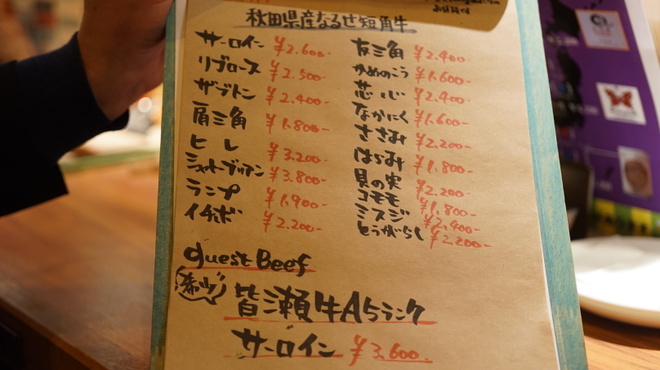 秋田県産なるせ短角牛
サーロイン ¥2.600-
リブロース ¥2.500-
ザブトン ¥2.400-
肩三角 ¥1.800-
ヒレ ¥3.200-
シャトーブリアン ¥3.800-
ランプ ¥1.900-
イチボ ¥2.200-
友三角 ¥2.400-
かめのこう ¥1.600-
芯心 ¥2.400-
なかにく ¥1.600-
ささみ ¥2.200-
はらみ ¥1.800-
貝の実 ¥2.200-
コモモ ¥1.800-
ミスジ ¥2.400-
とうがらし ¥2.200-
guest Beef
皆瀬牛A5ランク
サーロイン ¥3.600.